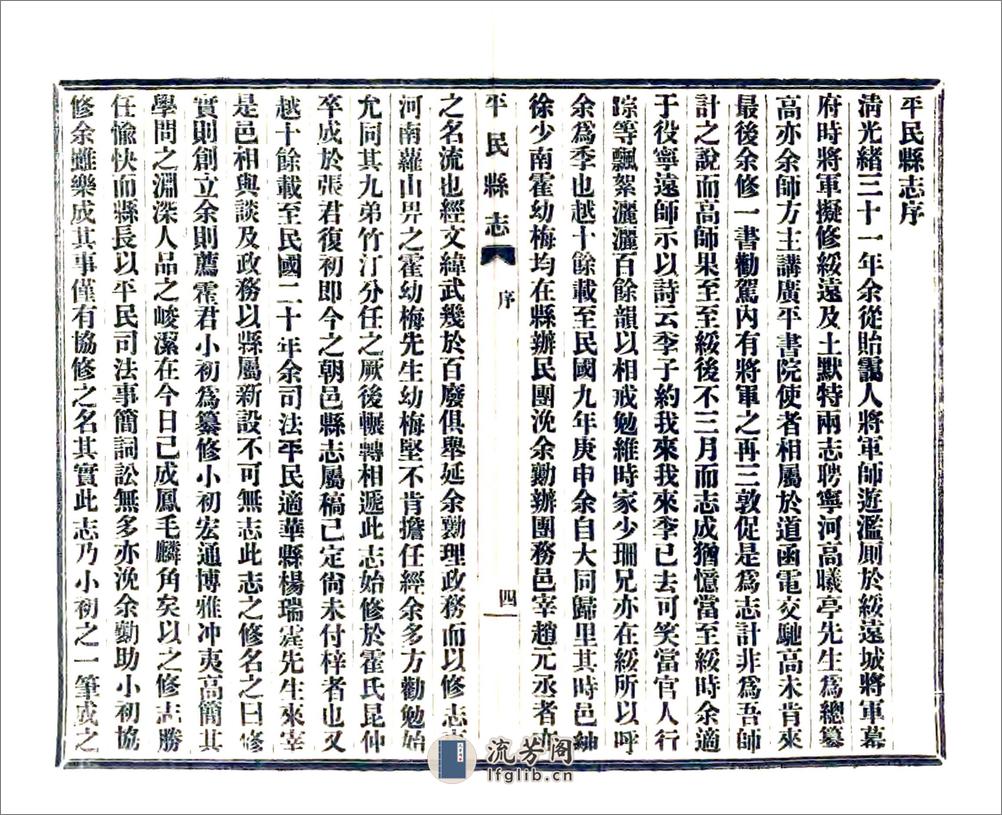 平民縣志序
清光緒三十一年余從貽靄人將軍師遊濫厠於綏遠城將軍幕
府時將軍擬修綏遠及土默特兩志聘寧河高曦亭先生爲總纂
高亦余師方主講廣平書院使者相屬於道函電交馳高未肯來
最後余修一書勸駕內有將軍之再三敦促是爲志計非爲吾師
計之說而高師果至至綏後不三月而志成猶憶當至綏時余適
于役寧遠師示以詩云李子約我來我來李已去可笑當官人行
踪等飄絮灑灑百餘韻以相戒勉維時家少珊兄亦在綏所以呼
余爲李也越十餘載至民國九年庚申余自大同歸里其時邑紳
徐少南霍幼梅均在縣辦民團浼余勷辦團務邑宰趙元丞者
平民縣志
序
四
之名流也經文緯武幾於百廢俱舉延余勷理政務而以修志
河南蘿山畀之霍幼梅先生幼梅堅不肯擔任經余多方勸勉始
允同其九弟竹汀分任之厥後輾轉相遞此志始修於霍氏昆仲
卒成於張君復初即今之朝邑縣志屬稿已定尙未付梓者也又
越十餘載至民國二十年余司法平民適華縣楊瑞霆先生來宰
是邑相與談及政務以縣屬新設不可無志此志之修名之曰修
實則創立余則薦霍君小初爲纂修小初宏通博雅冲夷高簡其
學問之淵深人品之峻潔在今日已成鳳毛麟角矣以之修志勝
任愉快而縣長以平民司法事簡詞訟無多亦浼余勷助小初協
修余攡樂成其事僅有協修之名其實此志乃小初之一筆成之
流芳阁
lfglib.cn